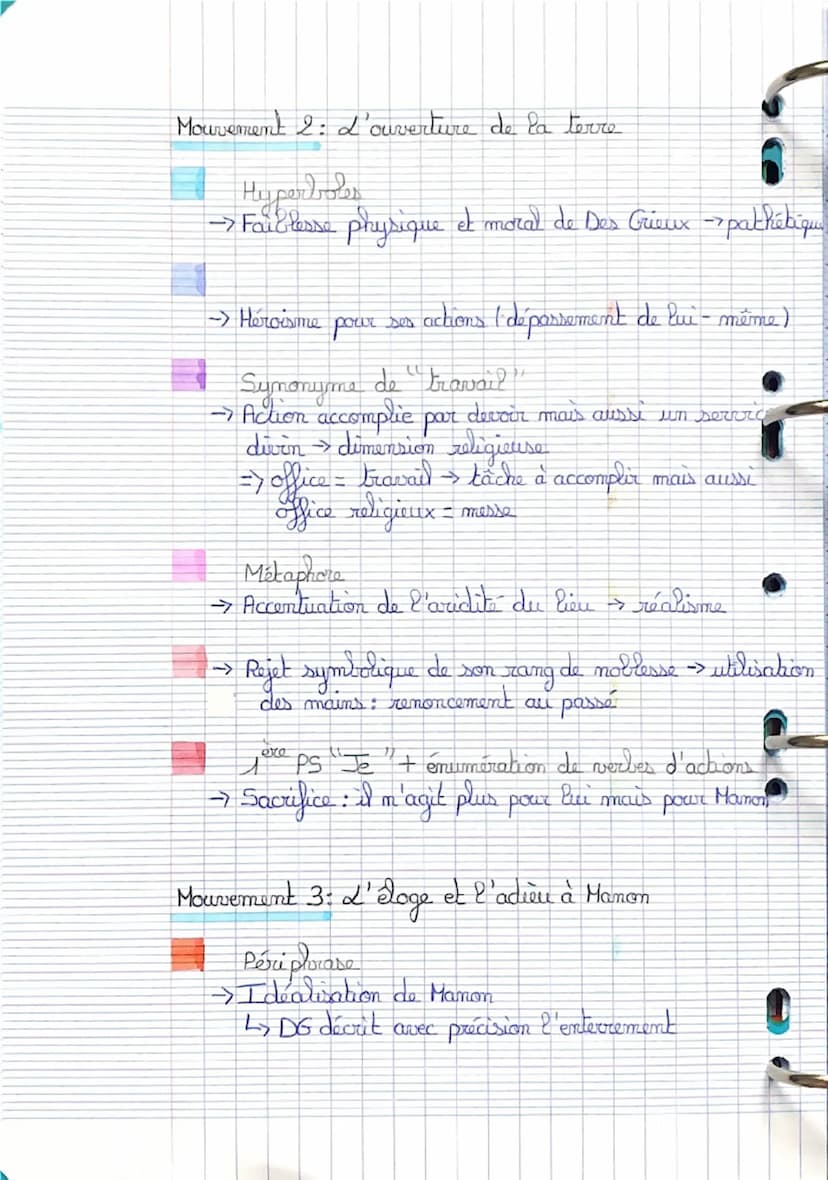 Mouvement 2: L'ouverture de la terre
Hyperboles
→ Faiblesse physique et moral de Des Grieux → pathétique
→ Héroïsme pour ses actions (dépassement de lui-même)
Synonyme de "travail"
→ Action accomplie par devoir mais aussi un servic
divin → dimension religieuse
=> office = travail → tâche à accomplir mais aussi
office religieux = messe
Métaphore
→ Accentuation de l'aridité du lieu → réalisme
→ Rejet symbolique de son rang de noblesse → utilisation
des mains : renoncement au passé
1ère PS "Je" + énumération de verbes d'actions
→ Sacrifice : il m'agit plus pour lui mais pour Manon
Mouvement 3: L'éloge et l'adieu à Manon
Périphrase
→ Idéalisation de Manon
↳ DG décrit avec précision l'enterrement